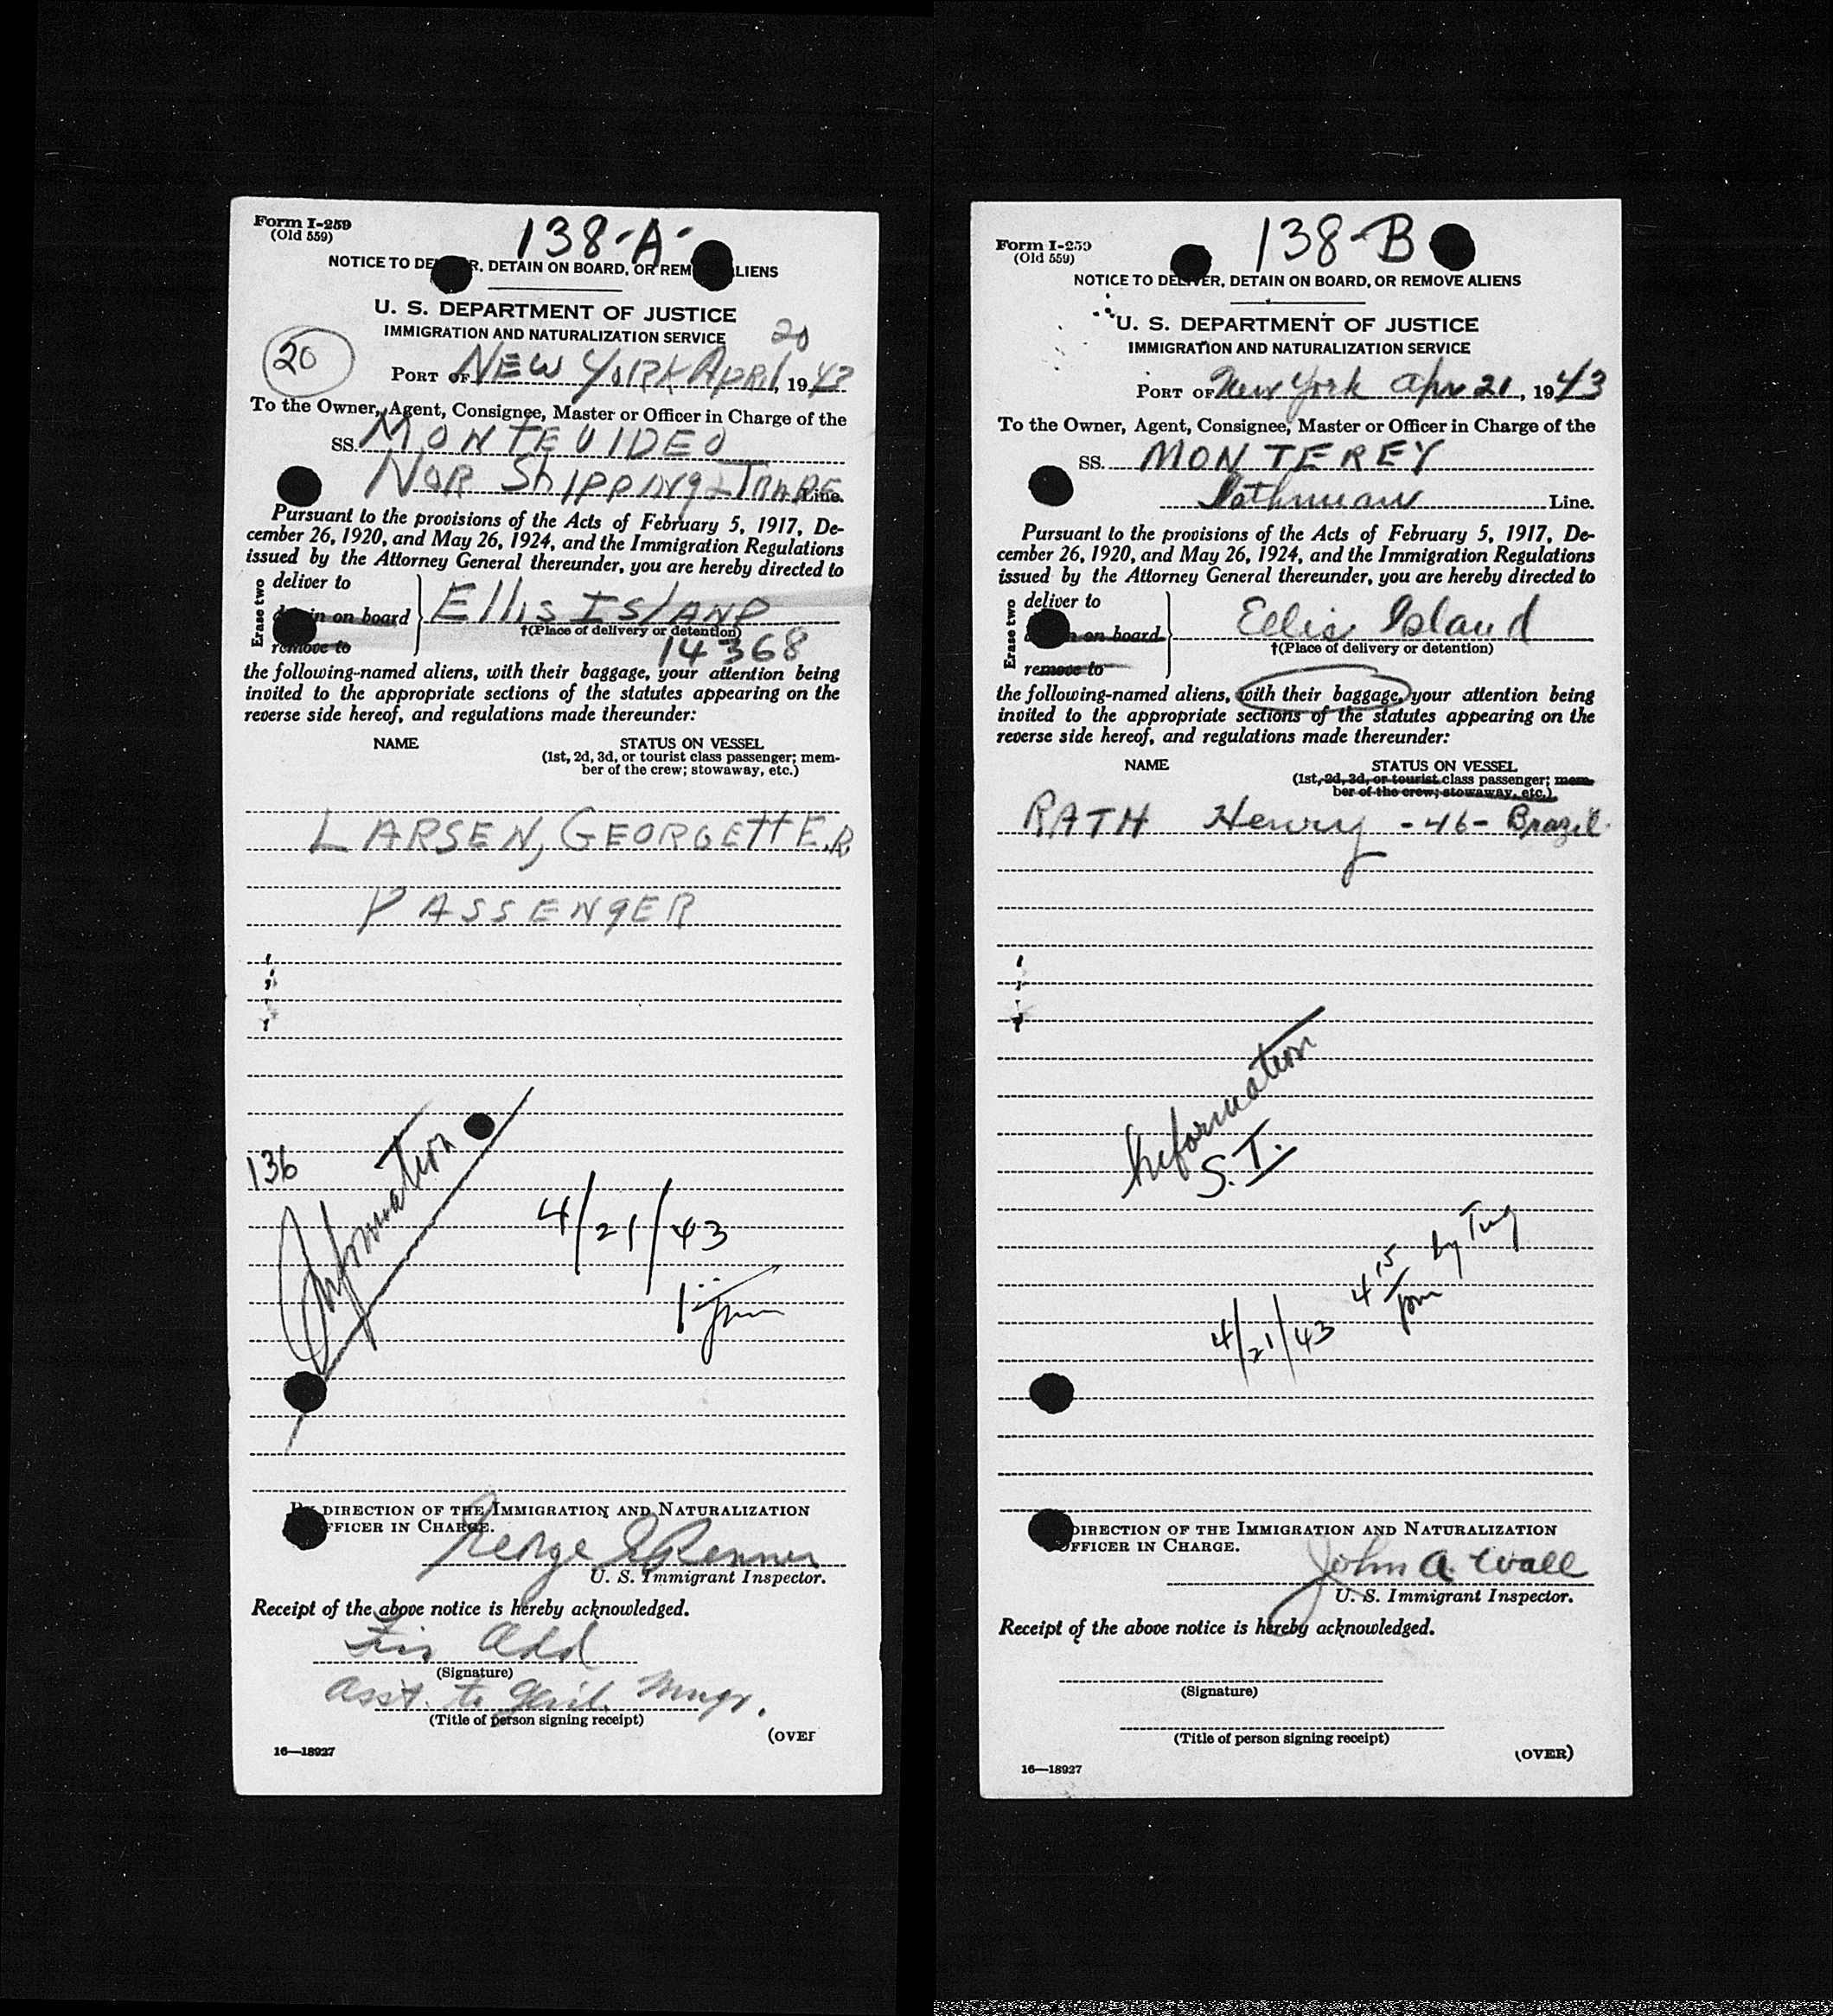 Form I-259
(Old 559)
138-A-
NOTICE TO DE R, DETAIN ON BOARD, OR REM LIENS
U. S. DEPARTMENT OF JUSTICE
IMMIGRATION AND NATURALIZATION SERVICE
20
20
PORT OF NEW YORK APRIL, 1943
To the Owner, Agent, Consignee, Master or Officer in Charge of the
SS. MONTEVIDEO
NOR ShIPPINg & TRADE Line.
Pursuant to the provisions of the Acts of February 5, 1917, De-
cember 26, 1920, and May 26, 1924, and the Immigration Regulations
issued by the Attorney General thereunder, you are hereby directed to
Erase two
deliver to
in on board
remove to
EllIS ISlAND
†(Place of delivery or detention)
14368
the following-named aliens, with their baggage, your attention being
invited to the appropriate sections of the statutes appearing on the
reverse side hereof, and regulations made thereunder:
NAME STATUS ON VESSEL
(1st, 2d, 3d, or tourist class passenger; mem-
ber of the crew; stowaway, etc.)
LARSEN, GEORGETTE R
PASSENgER
136
Information
4/21/43
DIRECTION OF THE IMMIGRATION AND NATURALIZATION
FFICER IN CHARGE.
George Renner
U. S. Immigrant Inspector.
Receipt of the above notice is hereby acknowledged.
(Signature)
Asst. to Mngr.
(Title of person signing receipt)
(OVER
16—18927
Form I-259
(Old 559)
138-B
NOTICE TO DELIVER, DETAIN ON BOARD, OR REMOVE ALIENS
U. S. DEPARTMENT OF JUSTICE
IMMIGRATION AND NATURALIZATION SERVICE
PORT OF New York Apr 21, 1943
To the Owner, Agent, Consignee, Master or Officer in Charge of the
SS. MONTEREY
Line.
Pursuant to the provisions of the Acts of February 5, 1917, De-
cember 26, 1920, and May 26, 1924, and the Immigration Regulations
issued by the Attorney General thereunder, you are hereby directed to
Erase two
deliver to
n on board
remove to
Ellis Island
†(Place of delivery or detention)
the following-named aliens, with their baggage, your attention being
invited to the appropriate sections of the statutes appearing on the
reverse side hereof, and regulations made thereunder:
NAME STATUS ON VESSEL
(1st, 2d, 3d, or tourist class passenger; mem-
ber of the crew; stowaway, etc.)
RATH Henry - 46 - Brazil.
Information
S.I.
4/21/43 4 15 pm by Tug
DIRECTION OF THE IMMIGRATION AND NATURALIZATION
OFFICER IN CHARGE.
John A. Wall
U. S. Immigrant Inspector.
Receipt of the above notice is hereby acknowledged.
(Signature)
(Title of person signing receipt)
(OVER)
16—18927